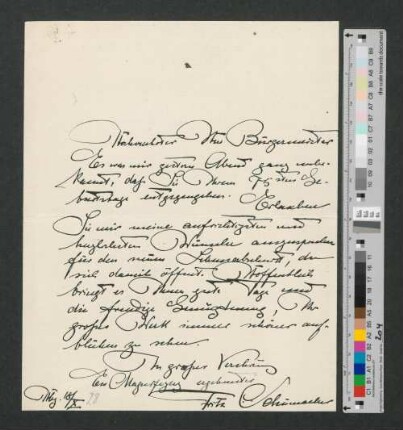 Hochverehrter Herr Bürgermeister
Es war mir gestern Abend ganz unbe-
kannt, daß Sie Ihrem Ge-
burtstage entgegengehen. Erlauben
Sie mir meine aufrichtigsten und
herzlichsten Wünsche auszusprechen
für den neuen Lebensabschnitt, der
sich damit öffnet. Hoffentlich
bringt er Ihnen gute Tage und
die freudige Genugtuung, Ihr
großes Werk immer schöner auf-
blühen zu sehen.
In großer Verehrung
Ew Magnifizenz ergebenster
Fritz Schumacher